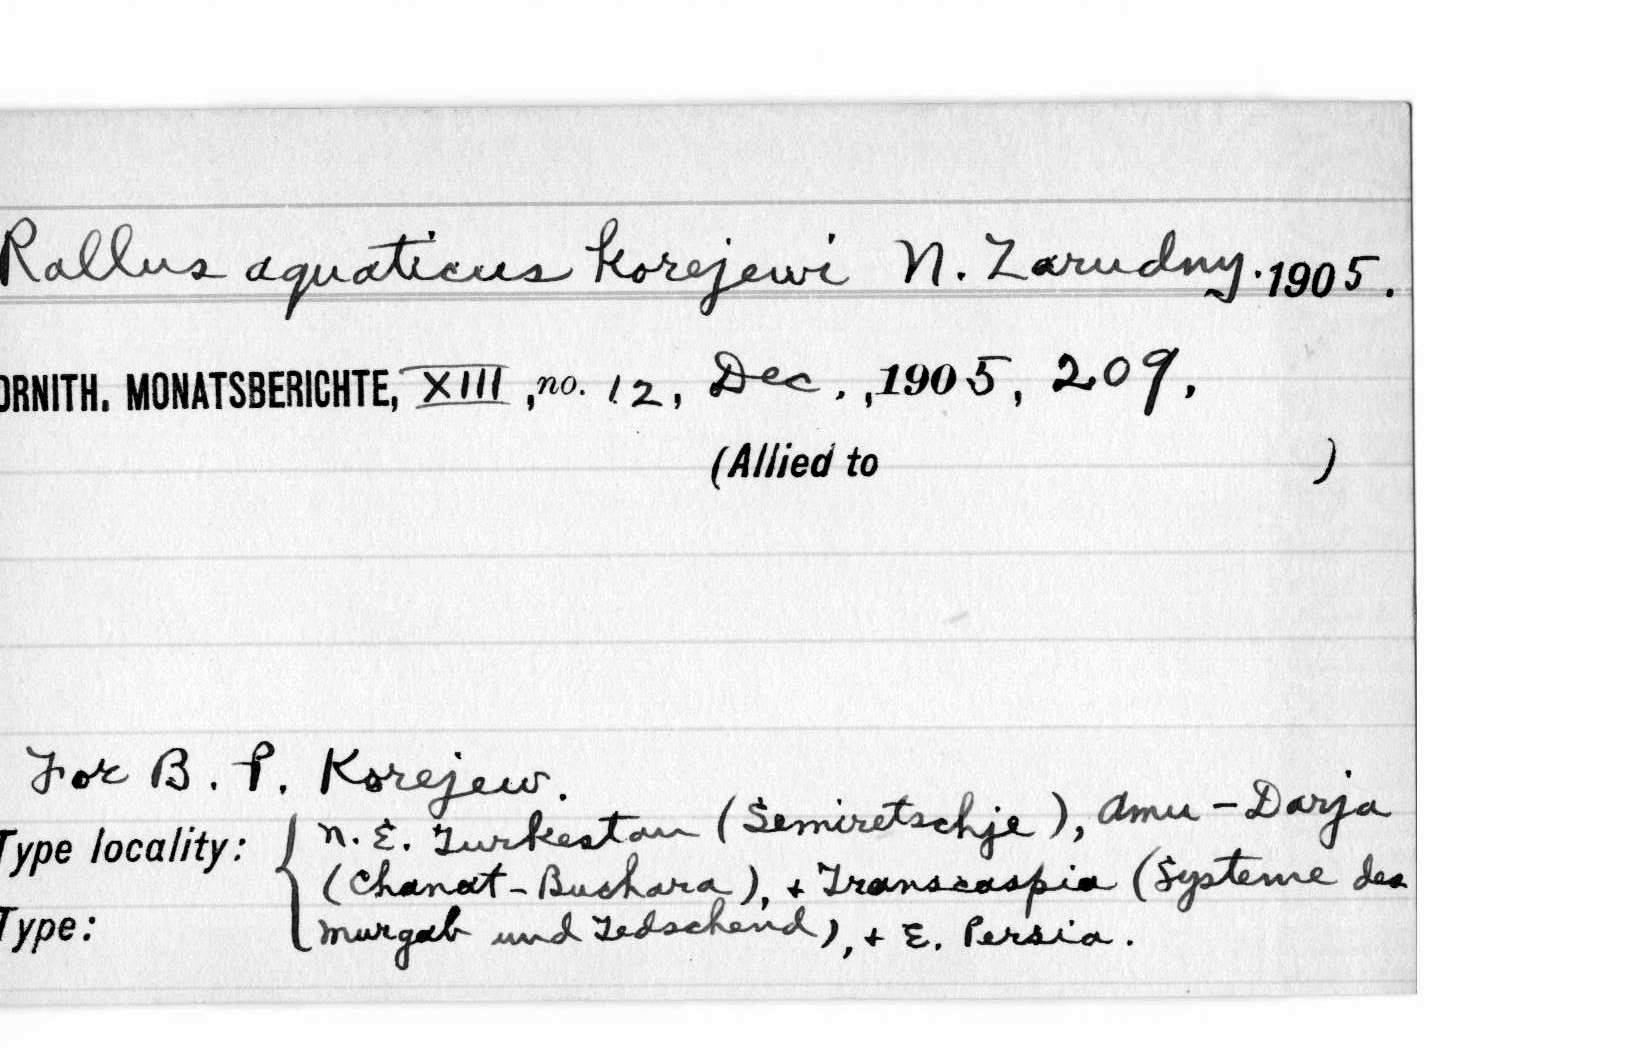 Rallus aquaticus korejewi N. Zarudny. 1905.
ORNITH. MONATSBERICHTE, XIII, no. 12, Dec., 1905, 209,
(Allied to )
For B. P. Korejew.
Type locality: N. E. Turkestan (Semiretschje), Amu-Darja
(Chanat-Buchara), + Transcaspia (Systeme des
Type: Murgab und Tedschend), + E. Persia.